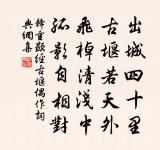 出城四十里
古堰若天外
飛棹清淺中
孤影自相對
釋重顯經古堰偶作詞
典網集